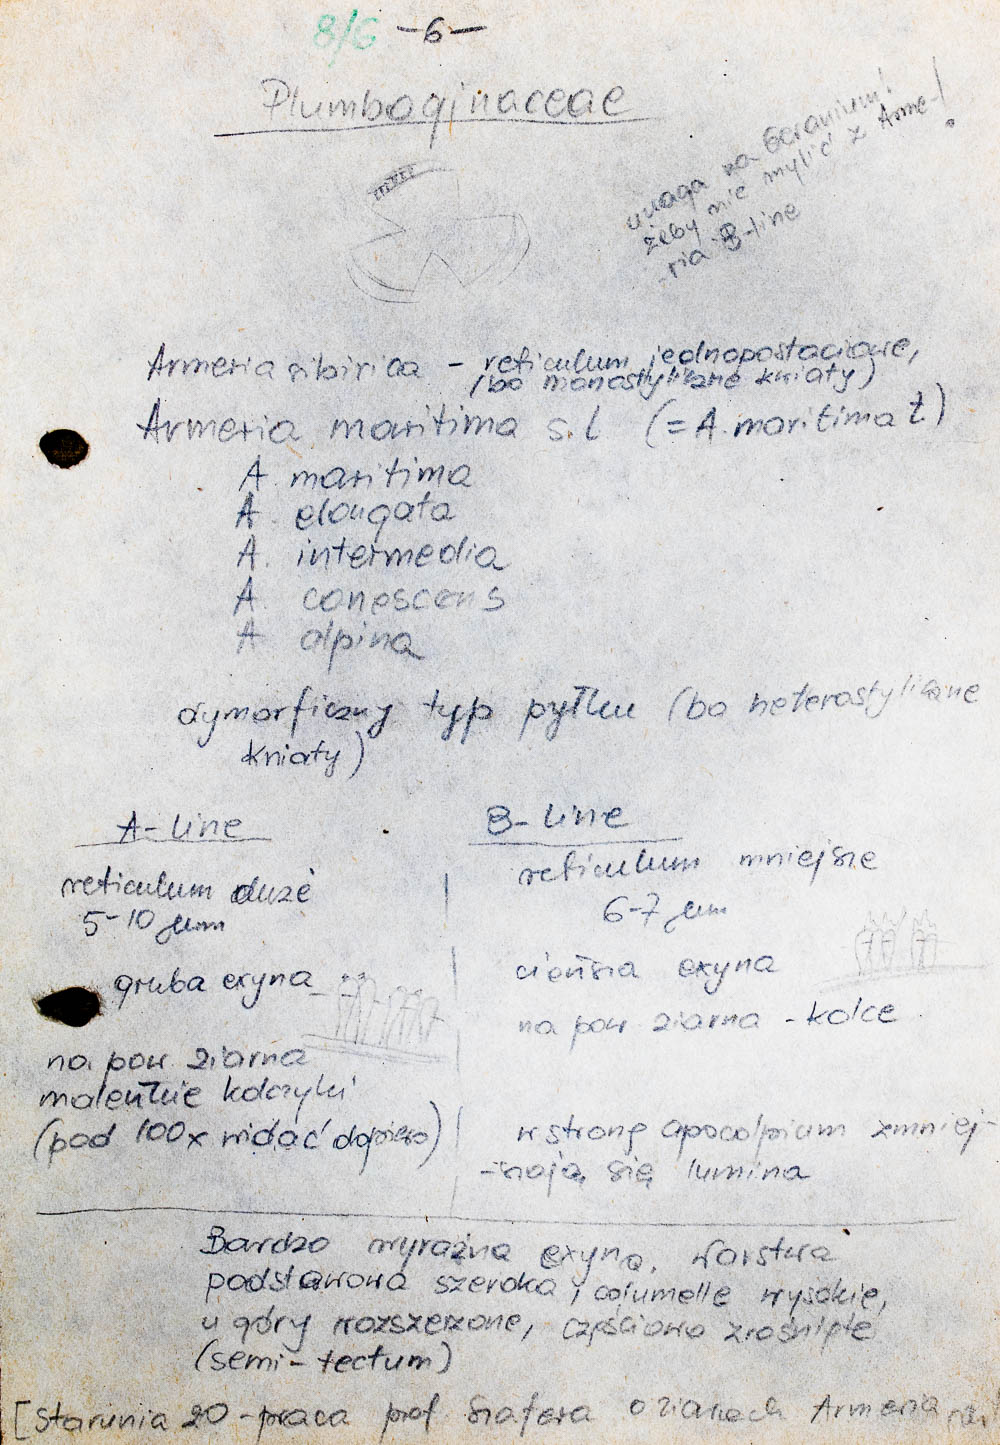 8/6 -6-
Plumbaginaceae
uwaga na Geranium!
żeby nie mylić z Arme-!
-ria B-line
Armeria sibirica - reticulum jednopostaciowe,
(bo monostyliczne kwiaty)
Armeria maritima s.l (= A. maritima t.)
A. maritima
A. elongata
A. intermedia
A. canescens
A. alpina
dymorficzny typ pyłku (bo heterostyliczne
kwiaty)
A-line
B-line
reticulum duże
5-10 µm
reticulum mniejsze
6-7 µm
gruba exyna
cieńsza exyna
na pow ziarna
maleńkie kolczyki
(pod 100x widać dopiero)
na pow ziarna - kolce
w stronę apocolpium zmniej-
-szają się lumina
Bardzo wyraźna exyna, warstwa
podstawowa szeroka, columelle wysokie,
u góry rozszerzone, częściowo zrośnięte
(semi-tectum)
[Starunia 20 - praca prof Szafera o ziarnach Armeria